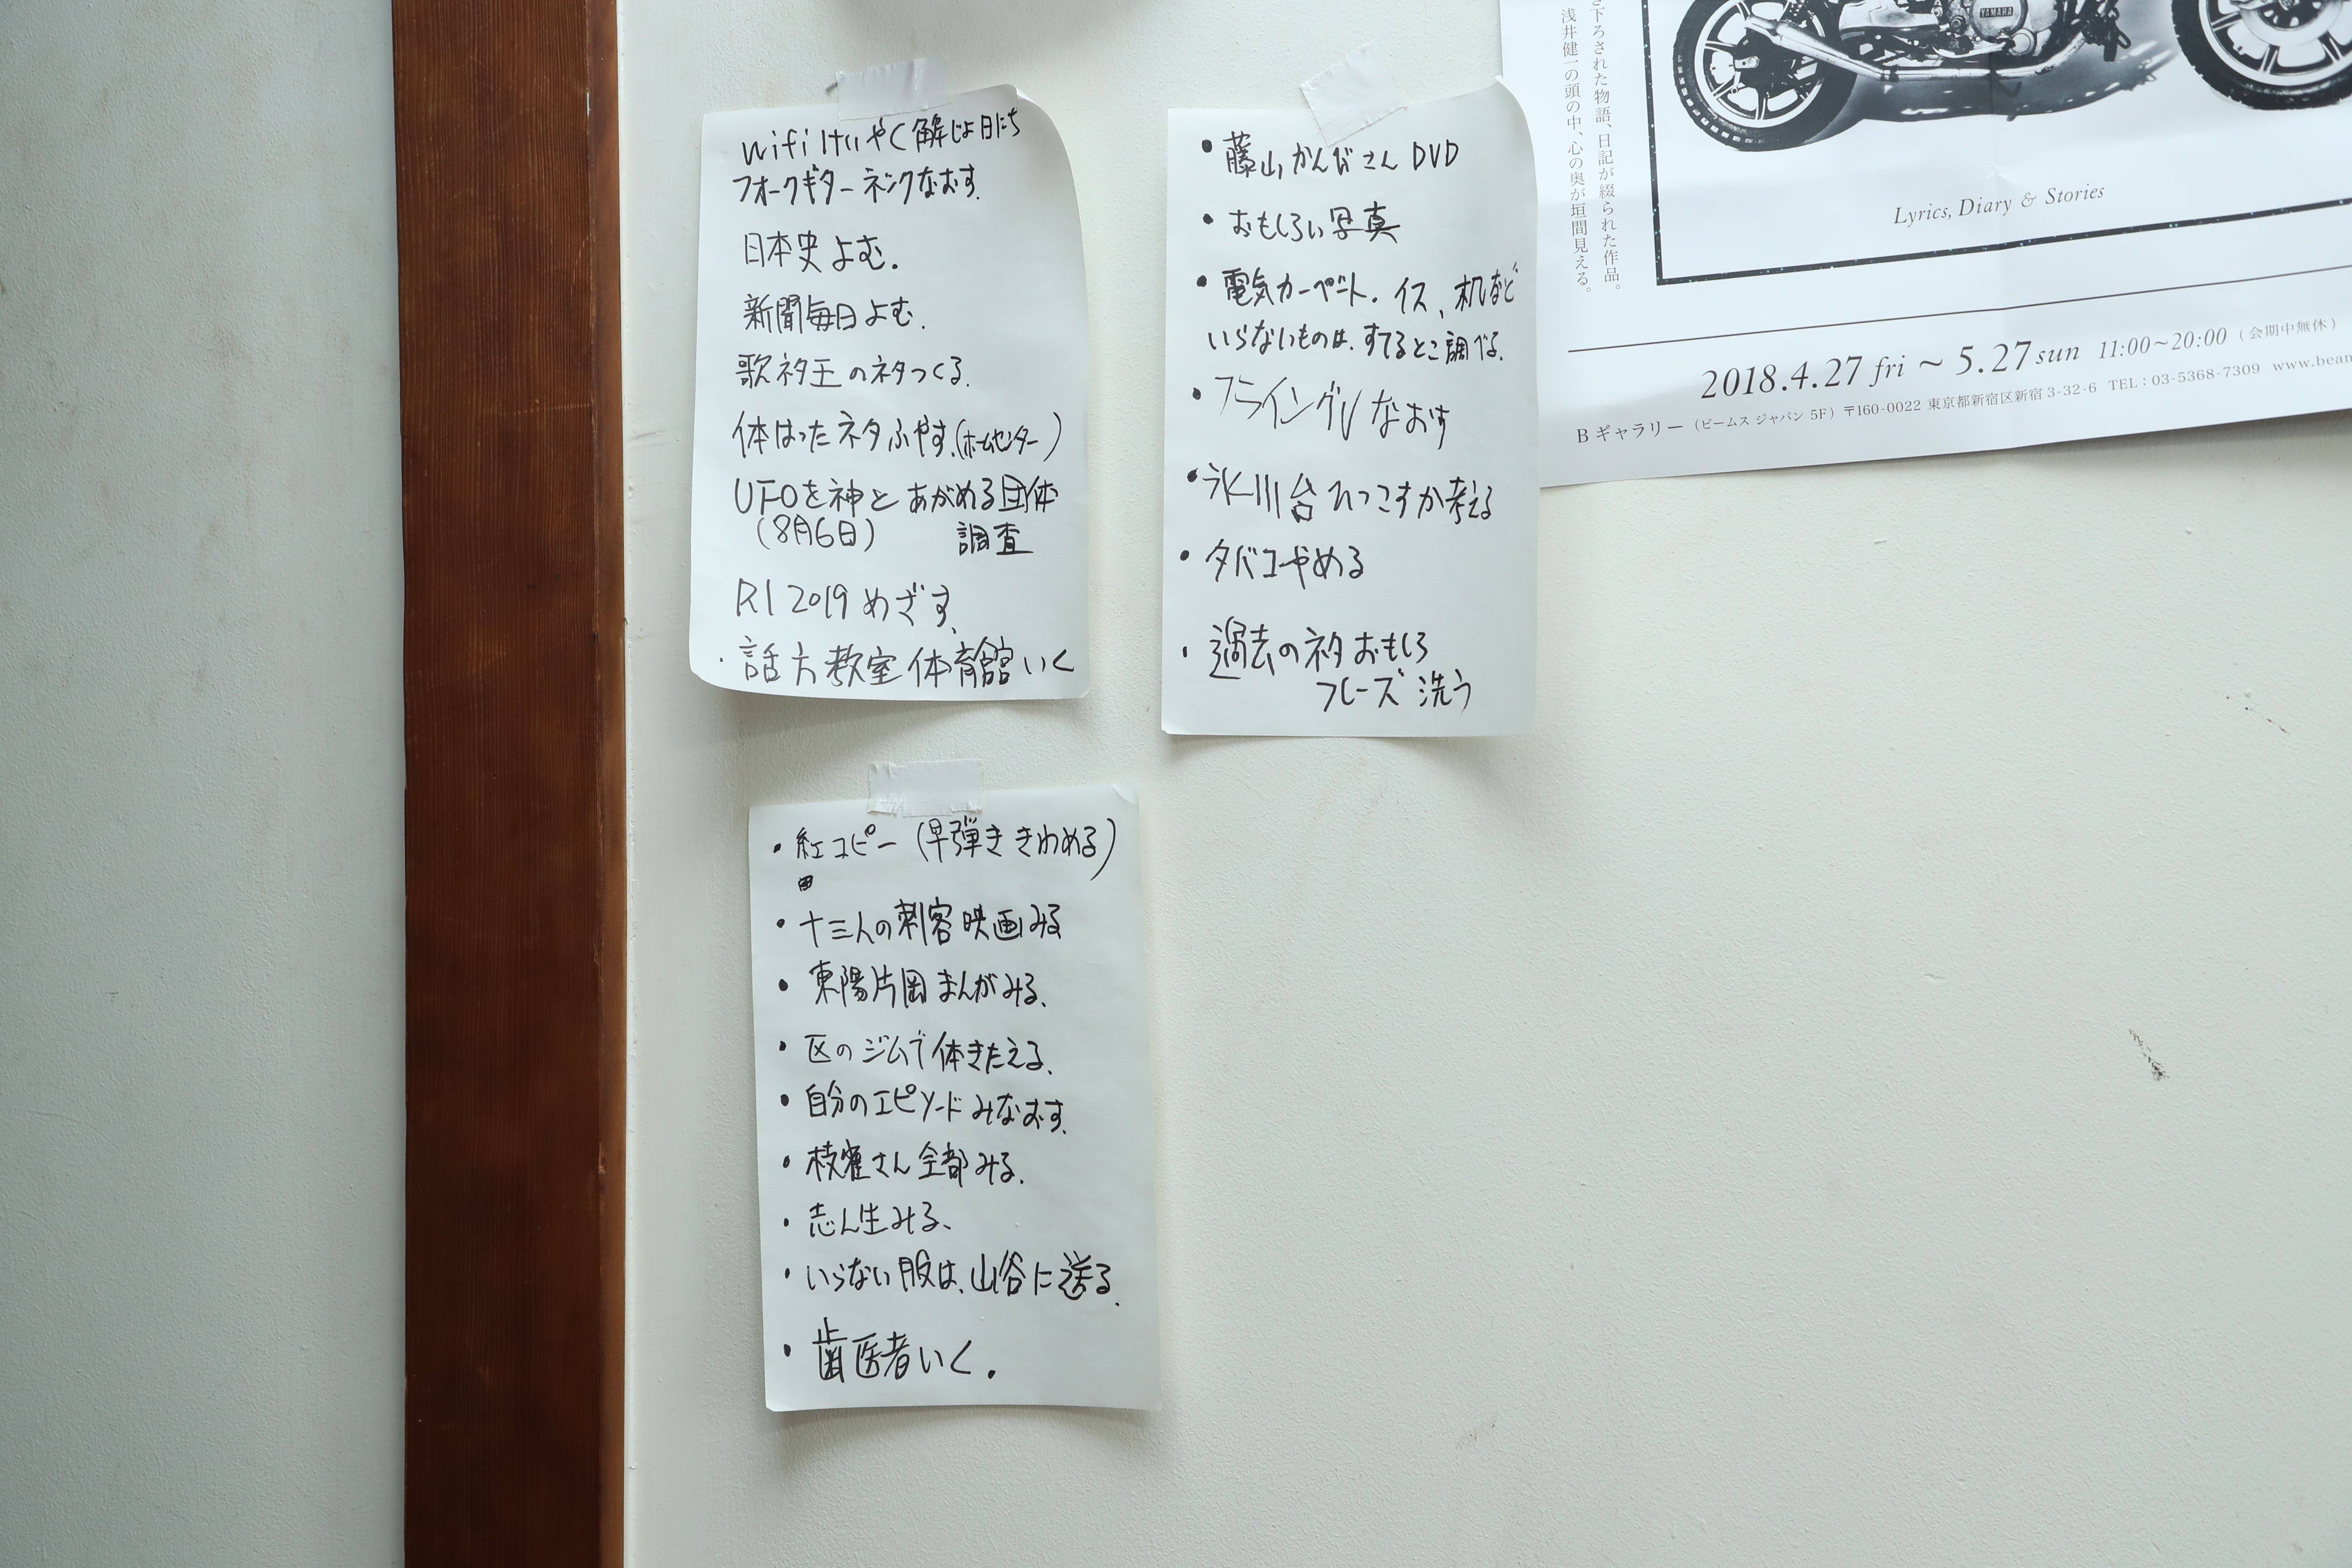 wifiけいやく解じょ日にち
フォークギターネックなおす.
日本史よむ.
新聞毎日よむ.
歌ネタ王のネタつくる.
体はったネタふやす.(ホームセンター)
UFOを神とあがめる団体
(8月6日) 調査
R1 2019 めざす、
・話方教室体育館いく
・藤山かんびさん DVD
・おもしろい写真
・電気カーペット. イス、机など
いらないものは、すてるとこ調べる.
・フライングVなおす
・氷川台ひっこすか考える
・タバコやめる
・過去のネタおもしろ
フレーズ洗う
・紅コピー (早弾ききわめる)
・十三人の刺客映画みる
・東陽片岡まんがみる、
・区のジムで体きたえる、
・自分のエピソードみなおす.
・枝雀さん全部みる.
・志ん生みる、
・いらない服は、山谷に送る.
・歯医者いく.
下ろされた物語、日記が綴られた作品。
浅井健一の頭の中、心の奥が垣間見える。
YAMAHA
Lyrics, Diary & Stories
2018.4.27 fri 〜 5.27 sun 11:00〜20:00 (会期中無休)
Bギャラリー (ビームス ジャパン 5F) 〒160-0022 東京都新宿区新宿 3-32-6 TEL : 03-5368-7309 www.beam